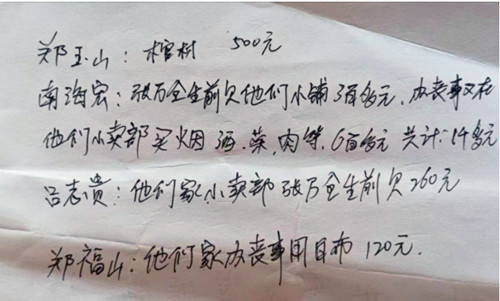 郑玉山：棺材 500元
南海宏：张万全生前欠他们小铺3百多元，办丧事又在
他们小卖部买烟 酒、菜、肉等，6百多元 共计：1千多元
吕志贵：他们家小卖部 张万全生前欠260元
郑福山：他们家办丧事用白布 120元.